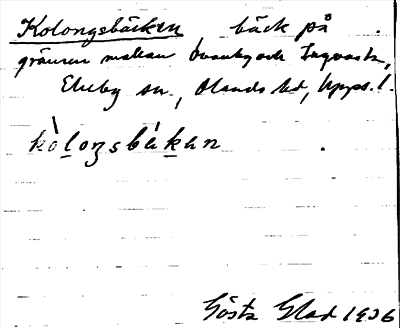 Kolongsbäcken, bäck på
gränsen mellan och Ingvasta,
Ekeby sn., Olands hd, Upps. l.
kòlongsbàkan
Gösta Glad 1936